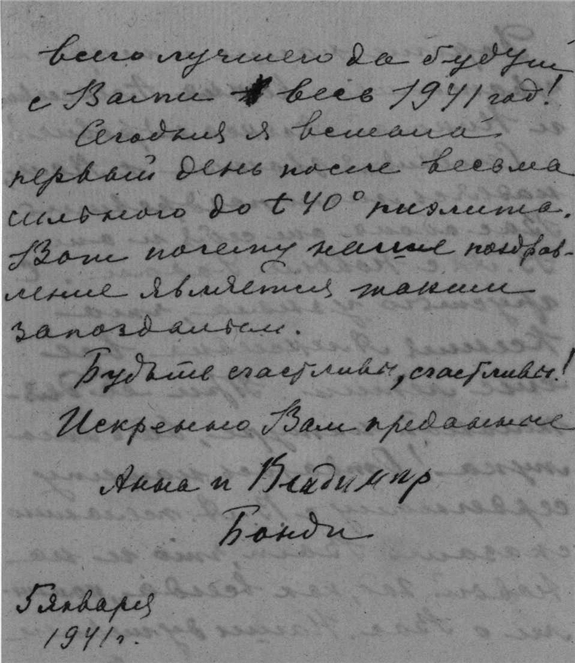 всего лучшего да будут
с Вами весь 1941 год!
Сегодня я встала
первый день после весьма
сильного до t 40° пиэлита.
Вот почему наше поздрав-
ление является таким
запоздалым.
Будьте счастливы, счастливы!
Искренно Вам преданные
Анна и Владимир
Бонди
5 января
1941 г.